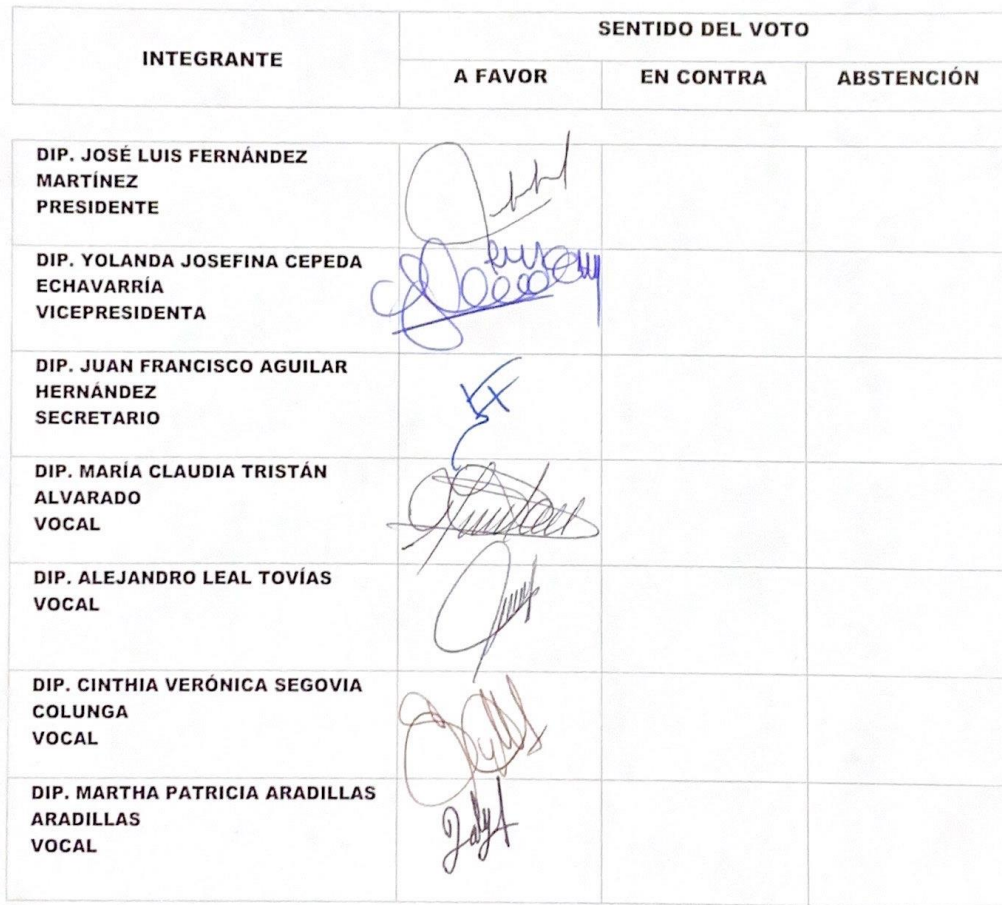 SENTIDO DEL VOTO
INTEGRANTE
A FAVOR EN CONTRA ABSTENCIÓN
DIP. JOSÉ LUIS FERNÁNDEZ
MARTÍNEZ
PRESIDENTE
DIP. YOLANDA JOSEFINA CEPEDA
ECHAVARRÍA
VICEPRESIDENTA
DIP. JUAN FRANCISCO AGUILAR
HERNÁNDEZ
SECRETARIO
DIP. MARÍA CLAUDIA TRISTÁN
ALVARADO
VOCAL
DIP. ALEJANDRO LEAL TOVÍAS
VOCAL
DIP. CINTHIA VERÓNICA SEGOVIA
COLUNGA
VOCAL
DIP. MARTHA PATRICIA ARADILLAS
ARADILLAS
VOCAL